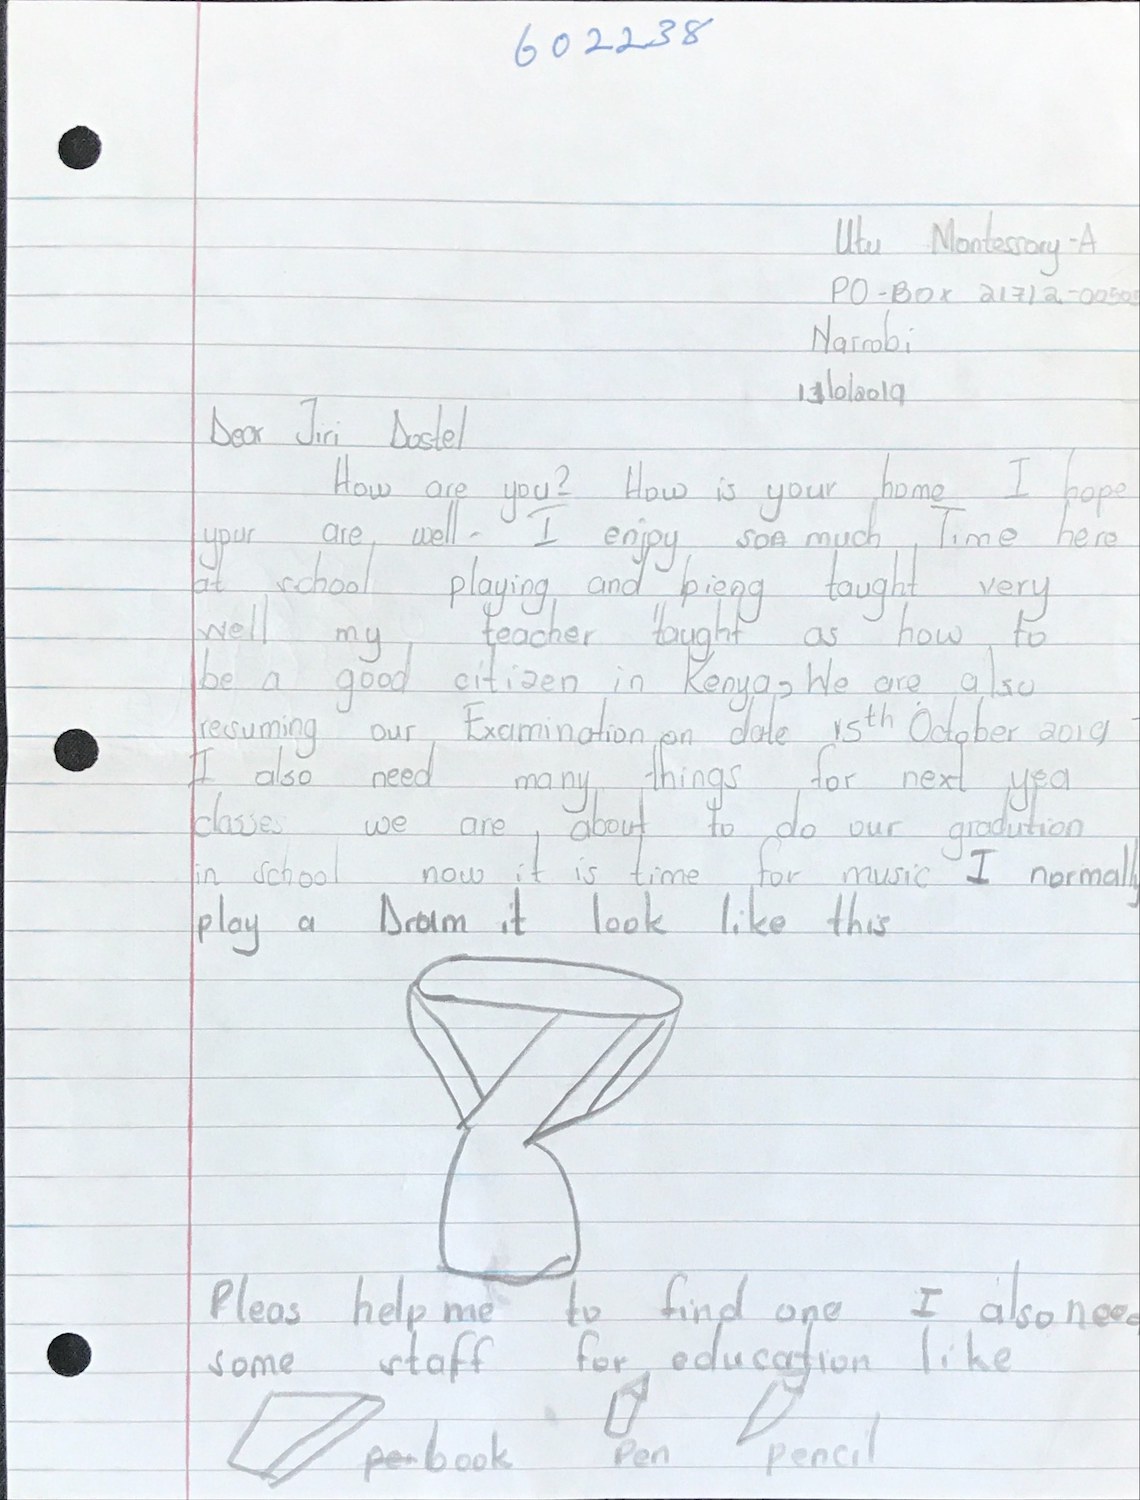 602238
Utu Montessory-A
PO-Box 21712-00505
Narrobi
Dear Jiri Dostel
How are you? How is your home I hope
your are well- I enjoy soo much Time here
at school playing and bieng taught very
well my teacher taught as how to
be a good citizen in Kenya, We are also
resuming our Examination on date 15th October 2019
I also need many things for next yea
classes we are about to do our gradution
in school now it is time for music I normally
play a Dram it look like this
Pleas help me to find one I also need
some staff for education like
book pen pencil